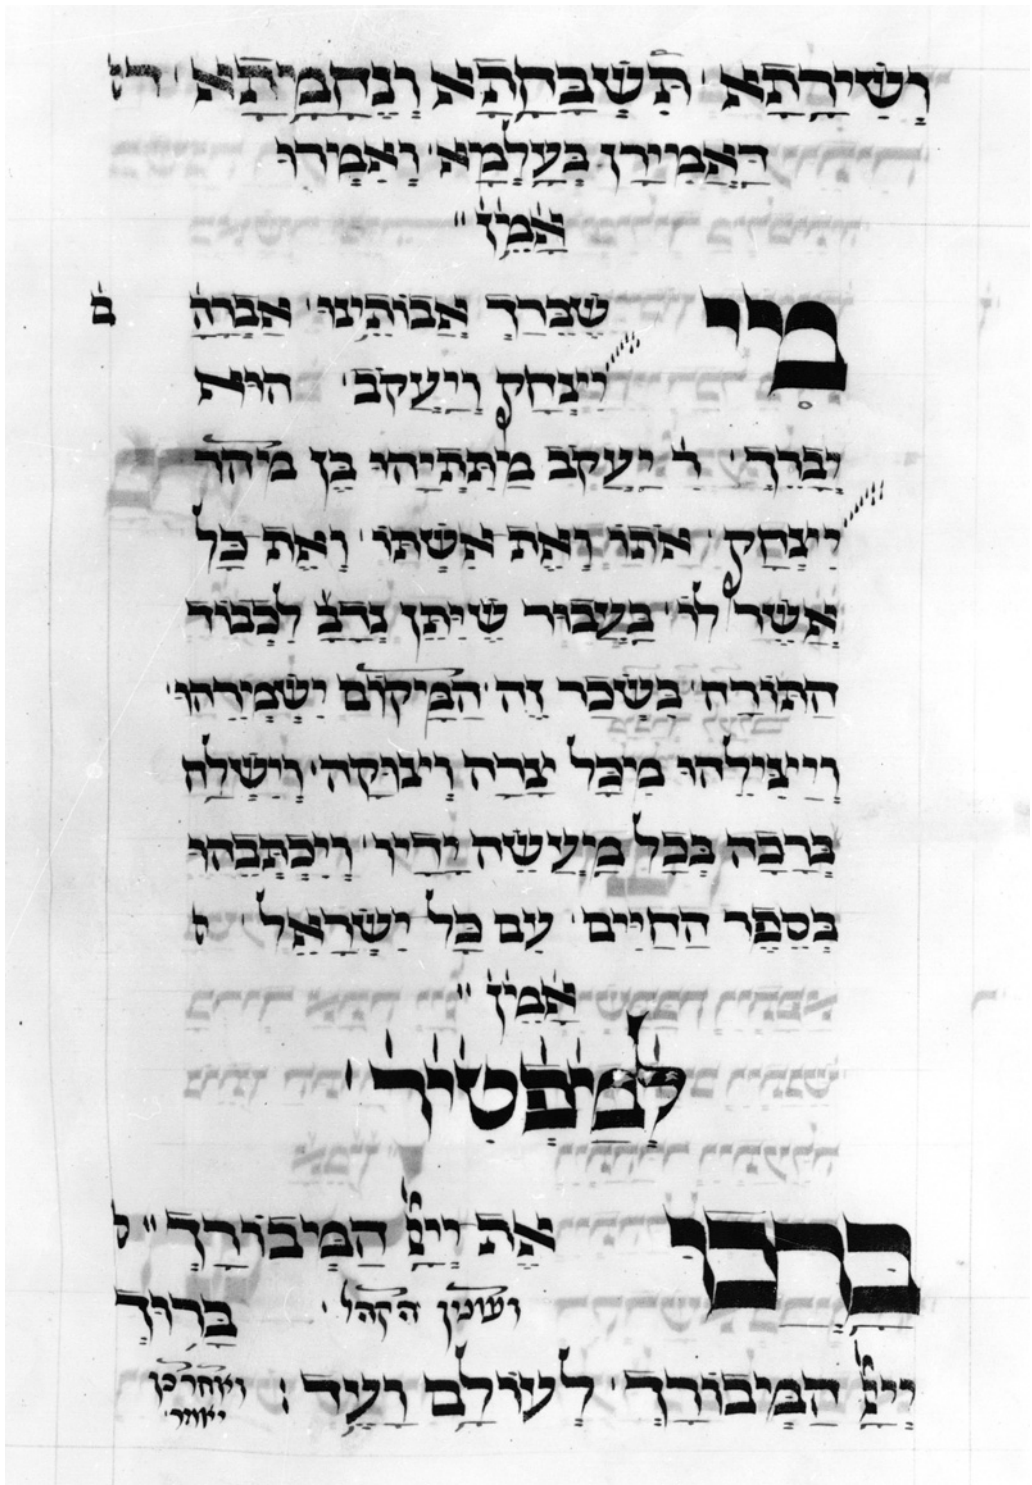 וְשִׁירָתָא תִּשְׁבְּחָתָא וְנֶחָמָתָא
דַּאֲמִירָן בְּעָלְמָא וְאִמְרוּ
אָמֵן
מִי שֶׁבֵּרַךְ אֲבוֹתֵינוּ אַבְרָהָ ם
יִצְחַק וְיַעֲקֹב הוּא
יְבָרֵךְ ר יַעֲקֹב מַתִּתְיָהוּ בֶּן מהר
יִצְחַק אֹתוֹ וְאֶת אִשְׁתּוֹ וְאֶת כָּל
אֲשֶׁר לוֹ בַּעֲבוּר שֶׁיִּתֵּן נְדָבָ לִכְבוֹד
הַתּוֹרָה בִּשְׂכַר זֶה הַמָּיקוֹם יִשְׁמְרֵהוּ
וְיִיצִּילֵהוּ מִיכָּל צָרָה וְצוּקָה וְיִשְׁלַח
בְּרָכָה בְּכָל מַעֲשֵׂה יָדָיו וְיִכְתְּבֵהוּ
בְּסֵפֶר הַחַיִּים עִם כָּל יִשְׂרָאֵל
אָמֵין
לְמַיפְטִיר
בָּרְכוּ אֶת יְיָ הַמְּבוֹרָךְ
ועונין הקהל בָּרוּךְ
יְיָ הַמְּבוֹרָךְ לְעוֹלָם וָעֶד ואחר כן
יאמר